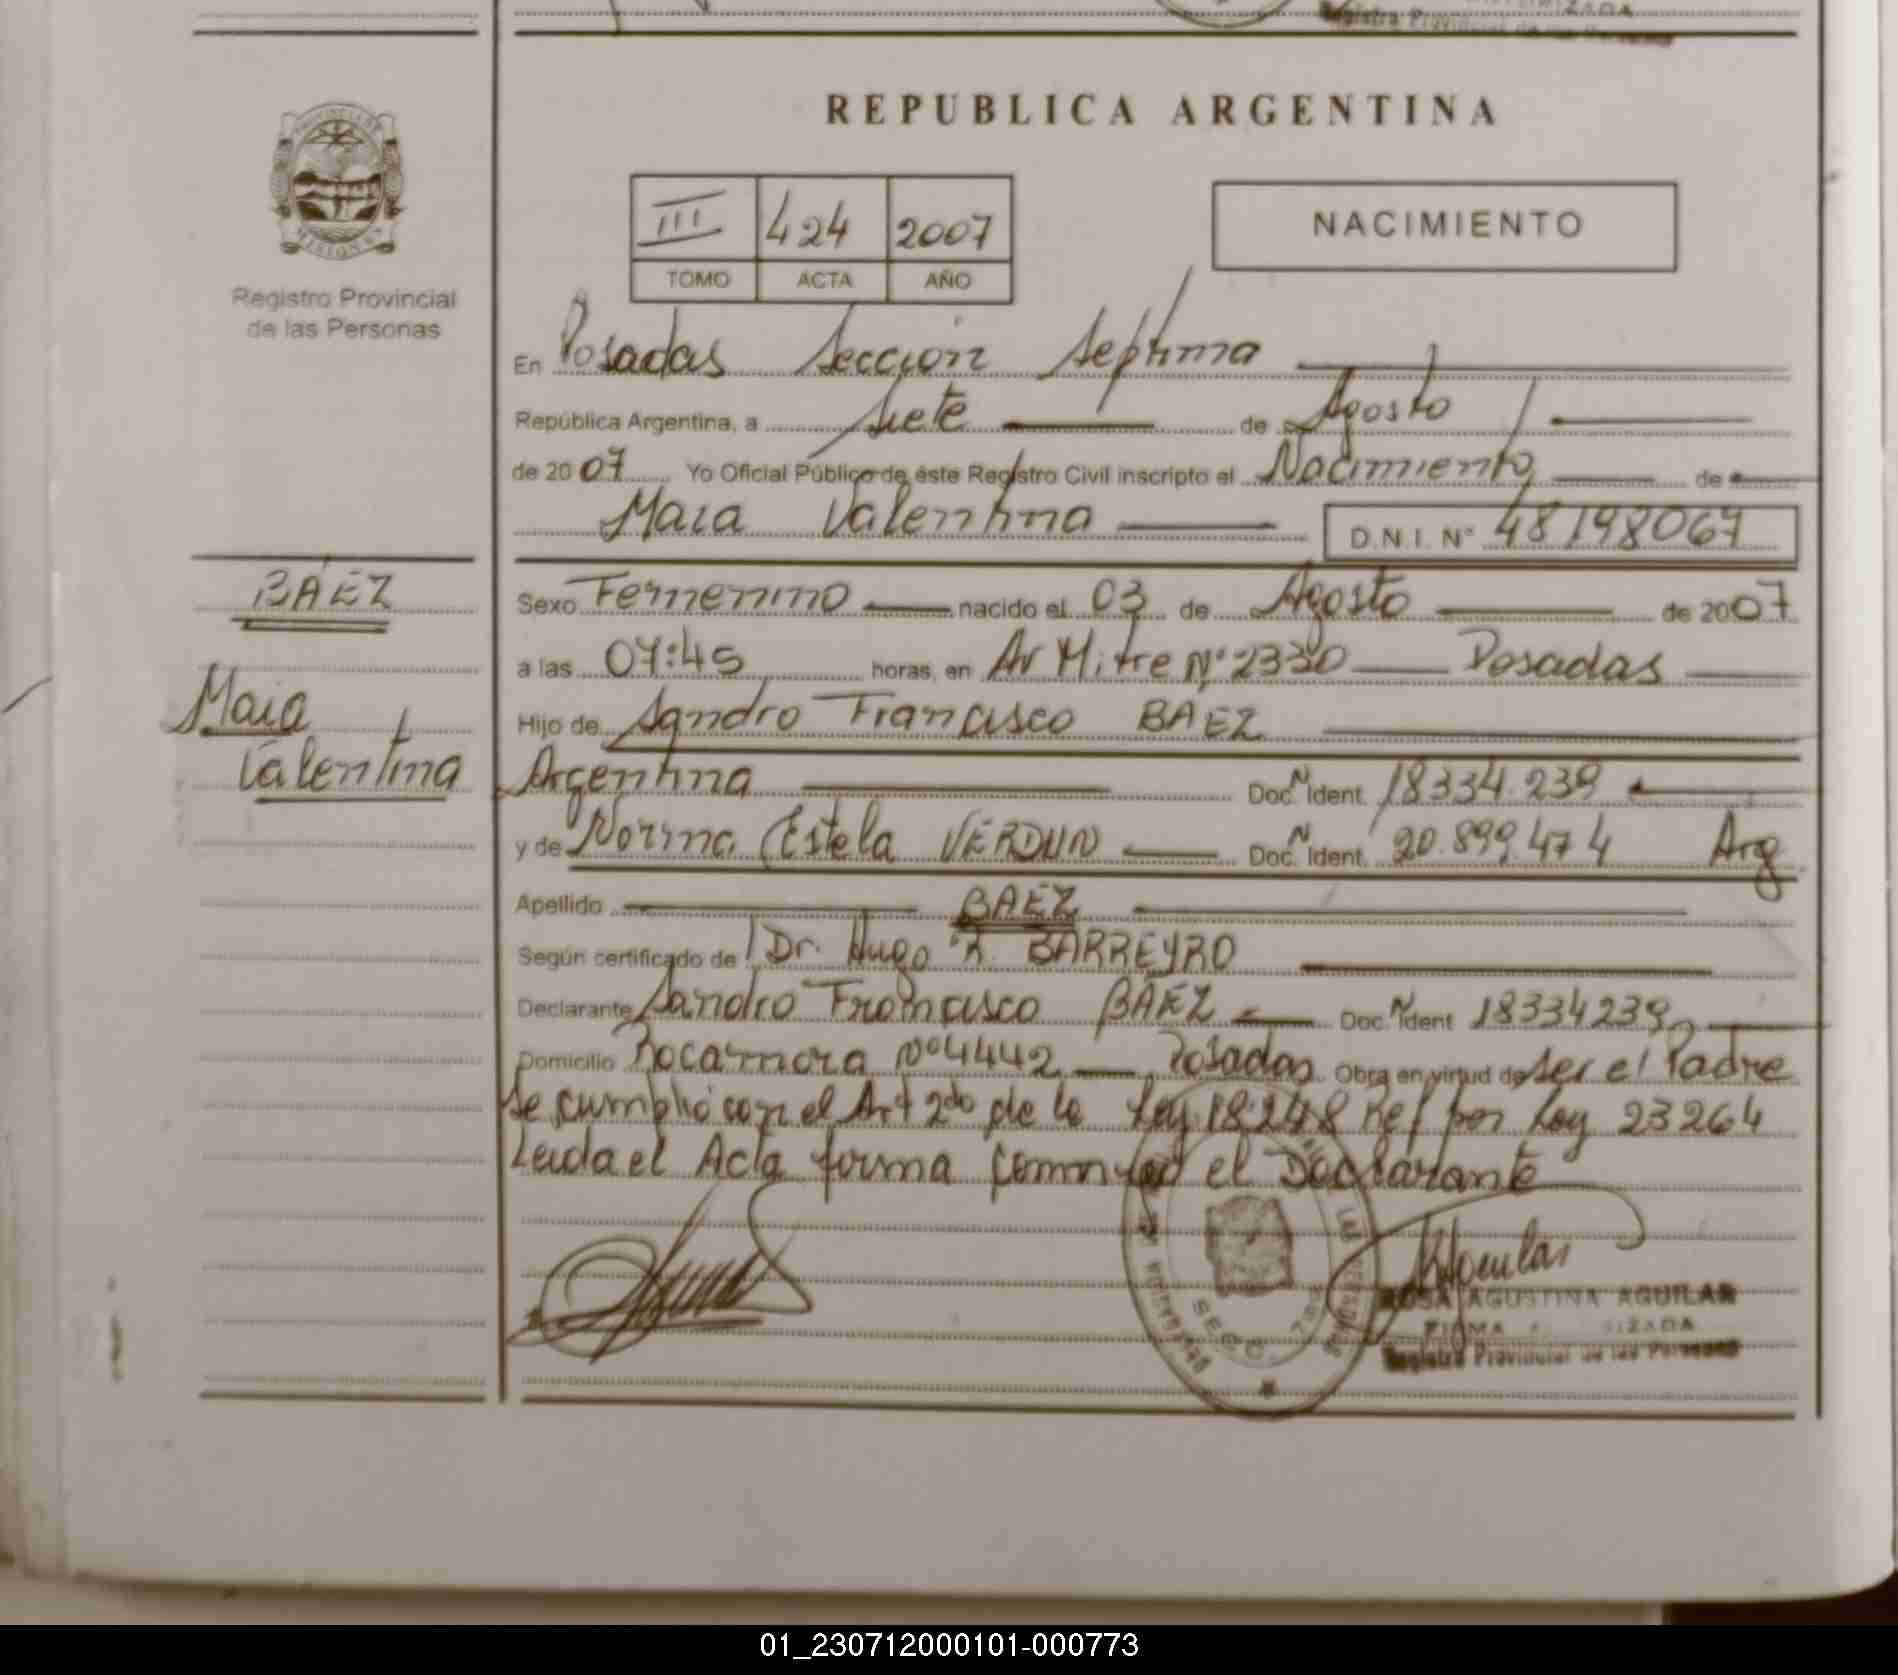 REPUBLICA ARGENTINA
PROVINCIA DE
MISIONES
Registro Provincial
de las Personas
III 424 2007
TOMO ACTA AÑO
NACIMIENTO
En Posadas Sección Septima
República Argentina, a siete de Agosto
de 2007 Yo Oficial Público de éste Registro Civil inscripto el Nacimiento de
Maia Valentina D.N.I. N° 48198067
BÁEZ
Maia
Valentina
Sexo Femenino nacido el 03 de Agosto de 2007
a las 07:45 horas, en Av Mitre N° 2330 Posadas
Hijo de Sandro Francisco BAEZ
Argentina Doc. N Ident. 18334.239
y de Norma Estela VERDUN Doc. N Ident. 20.899.474 Arg
Apellido BAEZ
Según certificado de Dr. Hugo R. BARREYRO
Declarante Sandro Francisco BÁEZ Doc. N Ident 18334239
Domicilio Rocamora N° 4442 Posadas Obra en virtud de ser el Padre
Se cumplió con el Art 2do de la Ley 18.248 Ref por Ley 23264
Leida el Acta firma conmigo el Declarante
ROSA AGUSTINA AGUILAR
FIRMA
Registro Provincial de las Personas
01_230712000101-000773